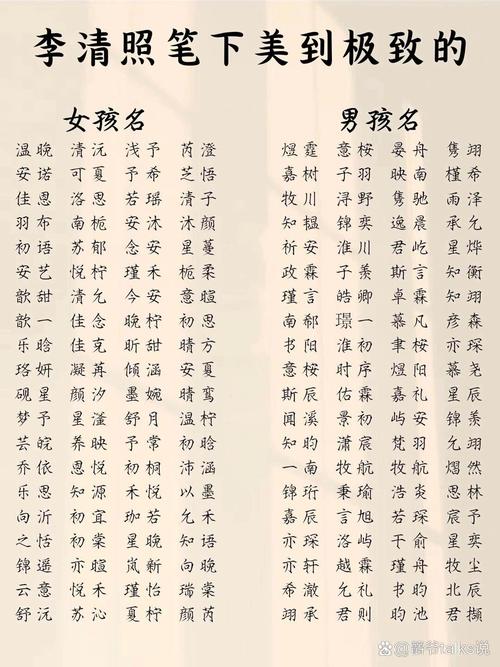 李清照笔下美到极致的
女孩名 男孩名
温晚 清沅 浅予 芮澄 煜霆 意桉 晏舟 隽翊
安诺 可夏 予希 芝悟 嘉树 子羽 映南 槿希
佳思 洛思 若瑶 清子 牧川 浔野 隽驰 雨泽
羽布 南栀 安沐 沐颜 知韫 锦奕 逸晨 承允
初语 苏郁 念安 星蔓 祈安 淮川 君屹 星烨
安艺 悦柠 瑾禾 栀柔 政霖 子羡 斯言 知衡
歆甜 清允 今安 意暄 瑾言 皓卿 卓霖 知翊
歆一 佳念 晚柠 初思 南郗 璟一 慕凡 彦森
乐晗 佳克 昕甜 晴方 书阳 淮初 聿桉 亦琛
珞妍 凝苒 倾涵 安夏 意桉 时序 煜阳 慕尧
砚星 颜汐 墨婉 晴鸾 斯辰 佑霖 嘉礼 星辰
梦予 星滏 舒月 温柠 闻溪 景初 屿安 锦羡
芸皖 养映 予常 初晗 知昀 潇宸 梵羽 允翊
乔依 思悦 初桐 沛涵 一南 牧航 牧航 熠然
乐思 知源 禾悦 以墨 锦珩 秉瑜 浩炎 思林
向沂 初宜 珈若 允禾 嘉辰 言旭 若琛 宸予
之恬 初棠 星晚 知语 亦琛 洛屿 千俞 星奕
锦遥 亦暄 岚新 向晚 亦轩 越霖 瑾舟 牧尘
云意 悦禾 瑾怡 瑞棠 希澈 允礼 书昀 北辰
舒沅 苏沁 夏柠 颜芮 翊承 君则 昀池 君撷
薯爷talks说